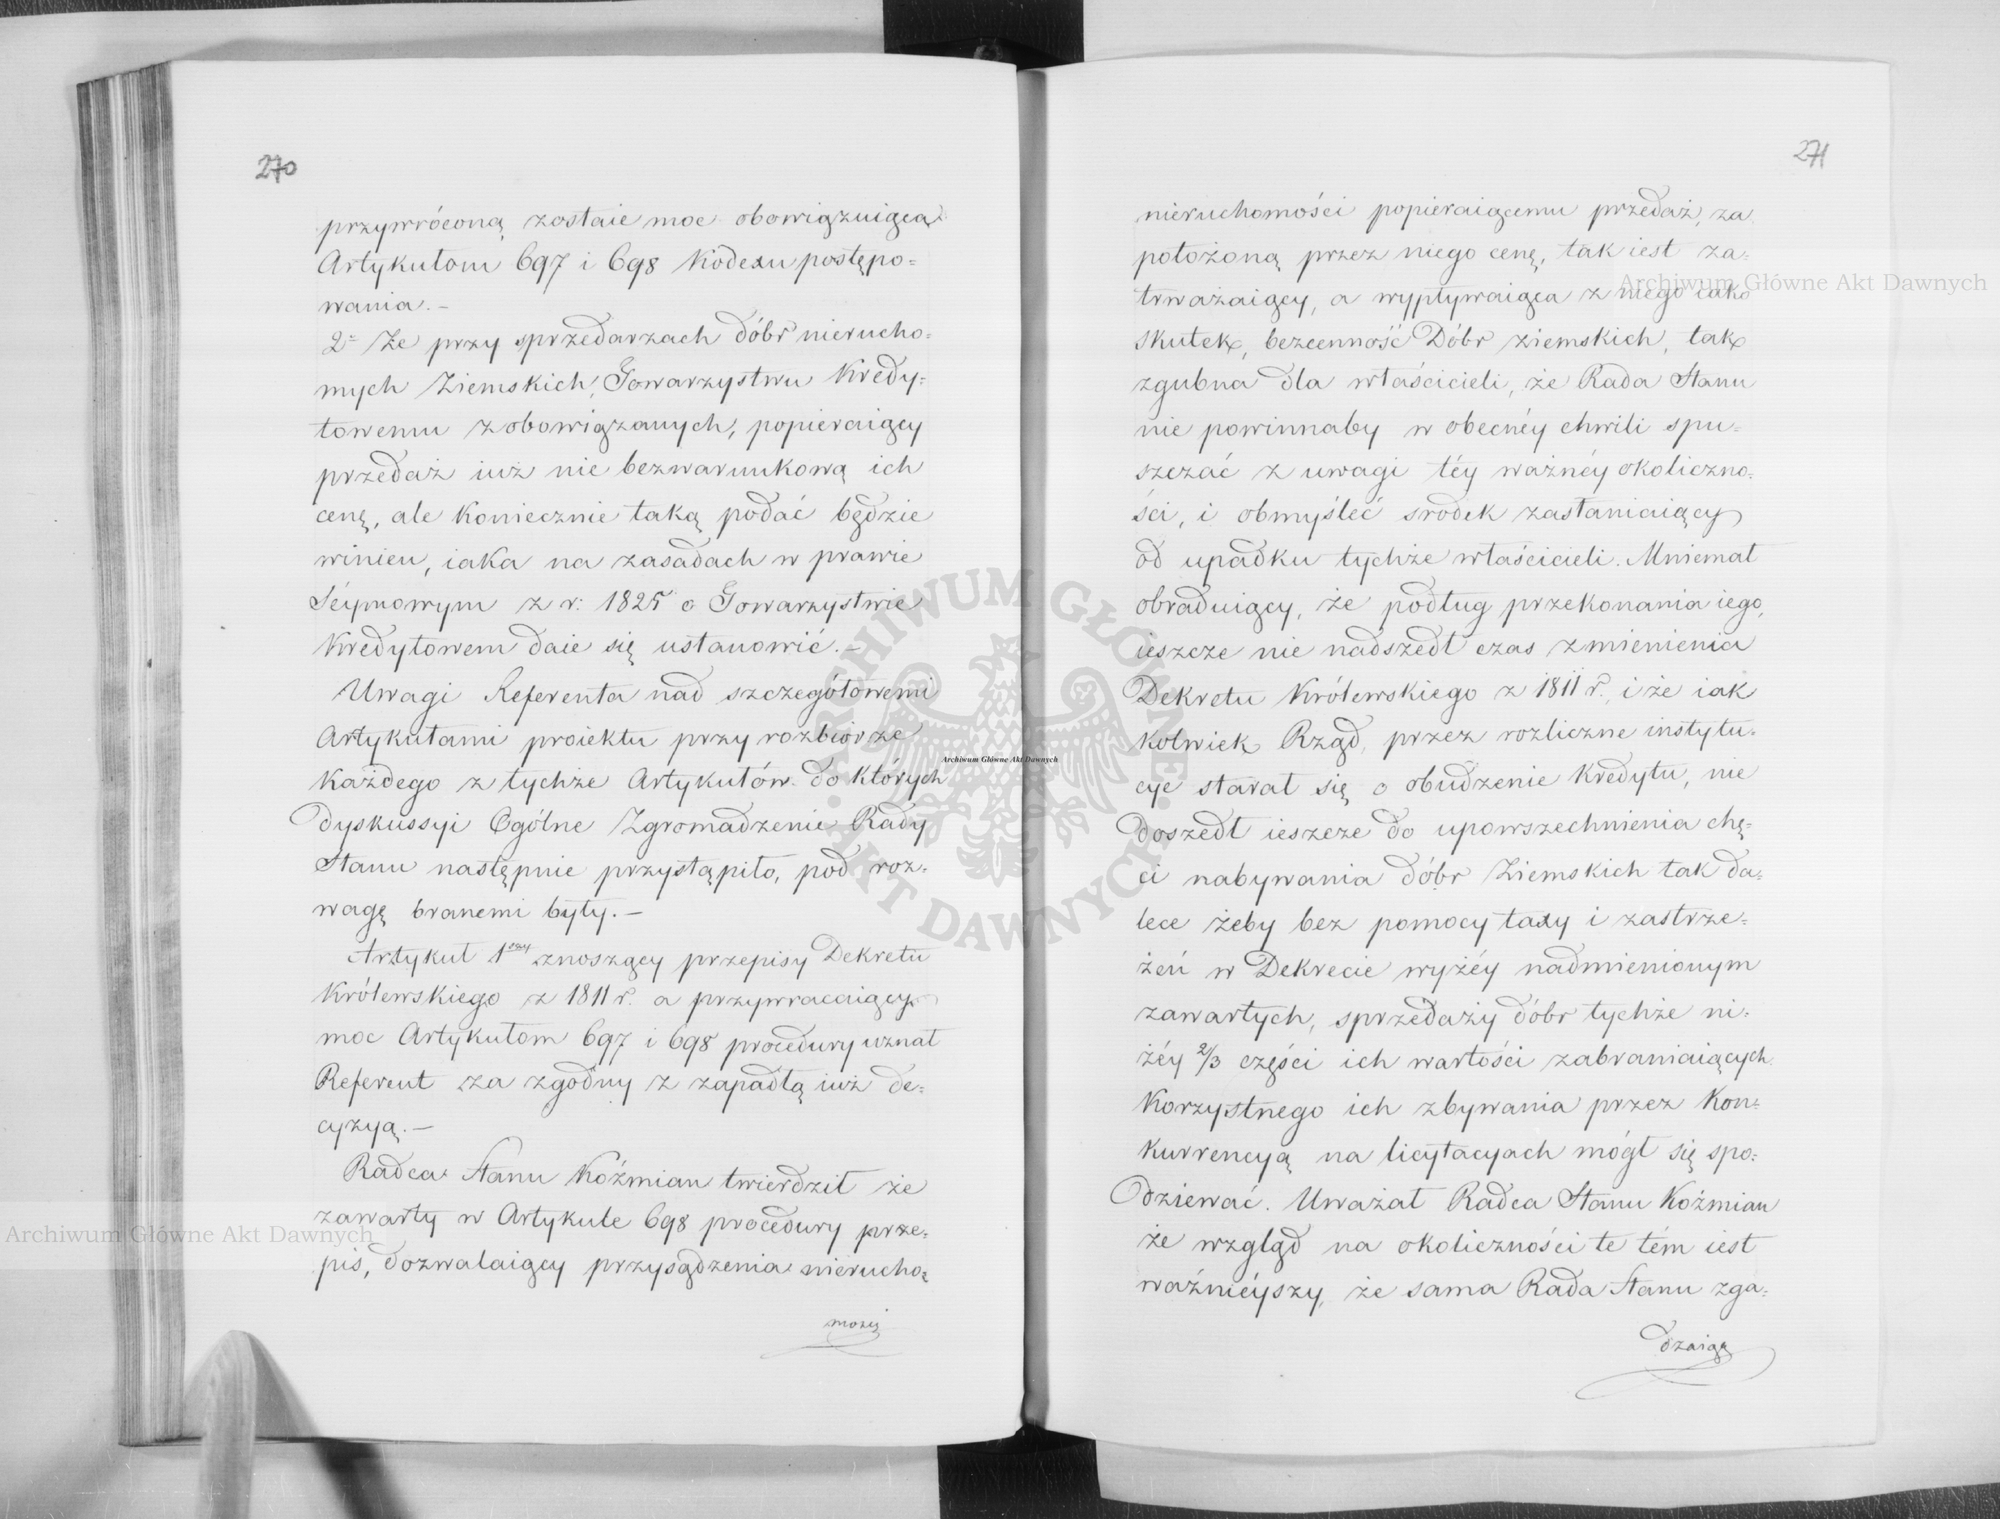 270
przywróconą zostaie moc obowiązuiąca
Artykułom 697 i 698 Kodexu postępo=
wania.—
2° Że przy sprzedarzach dóbr nierucho=
mych Ziemskich, Towarzystwu Kredy=
towemu zobowiązanych, popieraiący
przedaż iuż nie bezwarunkową ich
cenę, ale koniecznie taką podać będzie
winien, iaka na zasadach w prawie
Séymowym z r: 1825 o Towarzystwie
Kredytowem daie się ustanowić.—
Uwagi Referenta nad szczegółowemi
Artykułami proiektu przy rozbiorze
każdego z tychże Artykułów do których
dyskussyi Ogólne Zgromadzenie Rady
Stanu następnie przystąpiło, pod roz=
wagę branemi były.—
Artykuł 1szy znoszący przepisy Dekretu
Królewskiego z 1811 r. a przywracaiący
moc Artykułom 697 i 698 procedury uznał
Referent za zgodny z zapadłą iuż de=
cyzyą.—
Radca Stanu Koźmian twierdził że
zawarty w Artykule 698 procedury prze=
pis, dozwalaiący przysądzenia nierucho=
mości
271
nieruchomości popieraiącemu przedaż, za
położoną przez niego cenę, tak iest za=
trważaiący, a wypływaiąca z niego iako
skutek, bezcenność Dóbr ziemskich, tak
zgubna dla właścicieli, że Rada Stanu
nie powinnaby w obecnéy chwili spu=
szczać z uwagi téy ważnéy okoliczno=
ści, i obmyśleć srodek zasłaniaiący
od upadku tychże właścicieli. Mniemał
obraduiący, że podług przekonania iego,
ieszcze nie nadszedł czas zmienienia
Dekretu Królewskiego z 1811 r., i że iak
kolwiek Rząd, przez rozliczne instytu=
cye starał się o obudzenie kredytu, nie
doszedł ieszcze do upowszechnienia chę=
ci nabywania dóbr Ziemskich tak da=
lece żeby bez pomocy taxy i zastrze=
żeń w Dekrecie wyżéy nadmienionym
zawartych, sprzedaży dóbr tychże ni=
żéy 2/3 części ich wartości zabraniaiących
korzystnego ich zbywania przez kon=
kurrencyą na licytacyach mógł się spo=
dziewać. Uważał Radca Stanu Koźmian
że wzgląd na okoliczności te tém iest
ważnieyszy, że sama Rada Stanu zga=
dzaiąc
Archiwum Główne Akt Dawnych
Archiwum Główne Akt Dawnych
Archiwum Główne Akt Dawnych
ARCHIWUM GŁÓWNE
AKT DAWNYCH